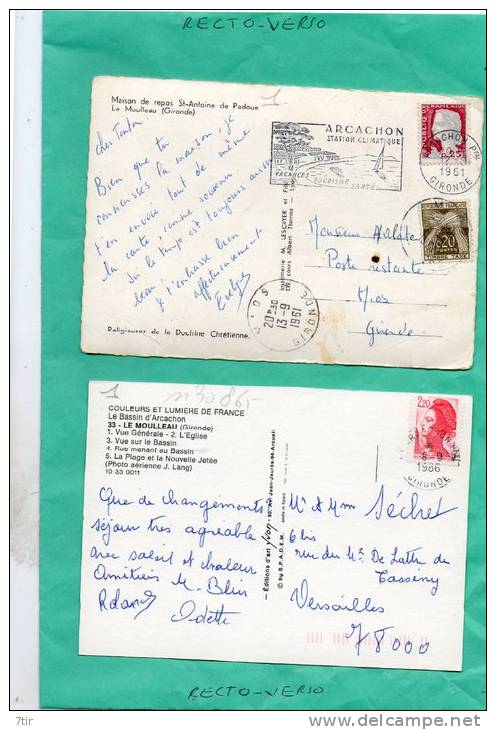 RECTO-VERSO
Maison de repos St-Antoine de Padoue
Le Moulleau (Gironde)
1
ARCACHON
STATION CLIMATIQUE
VACANCES - TOURISME - SANTÉ
ARCACHON Pal
1961
GIRONDE
REPUBLIQUE FRANÇAISE
0,25
0,20
POSTES
TIMBRE TAXE
cher Tonton
Bien que tu
connaisses la maison, je
t'en envoie tout de même
la carte comme souvenir
Ici le temps est toujours aussi
beau je t'embrasse bien
affectueusement
Monsieur
Poste restante
Mios
Gironde
MIOS
20H30
13-9
1961
GIRONDE
Religieuses de la Doctrine Chrétienne.
1
n° 30865
COULEURS ET LUMIÈRE DE FRANCE
Le Bassin d'Arcachon
33 - LE MOULLEAU (Gironde)
1. Vue Générale - 2. L'Eglise
3. Vue sur le Bassin
4. Rue menant au Bassin
5. La Plage et la Nouvelle Jetée
(Photo aérienne J. Lang)
10 33 0011
2,20
8-9
1986
GIRONDE
Que de changements
séjour très agréable
avec soleil et chaleur
Amitiés M. Blin
Roland
Odette
- Éditions d'art yvon -
© by S.P.A.D.E.M.
Mr & Mme Séchet
6 bis
rue du Mal De Lattre de
Tassigny
Versailles
78000
RECTO-VERSO
7tir
www.delcampe.net